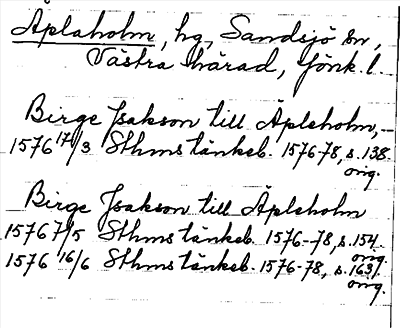 Äplaholm, hg, Sandsjö sn,
Västra härad, Jönk. l.
Birge Isakson till Äpleholm,
1576 17/3 Sthms tänkeb. 1576-78, s. 138.
orig.
Birge Isakson till Äpleholm
1576 7/5 Sthms tänkeb. 1576-78, s. 154.
orig.
1576 16/6 Sthms tänkeb. 1576-78, s. 163.
orig.